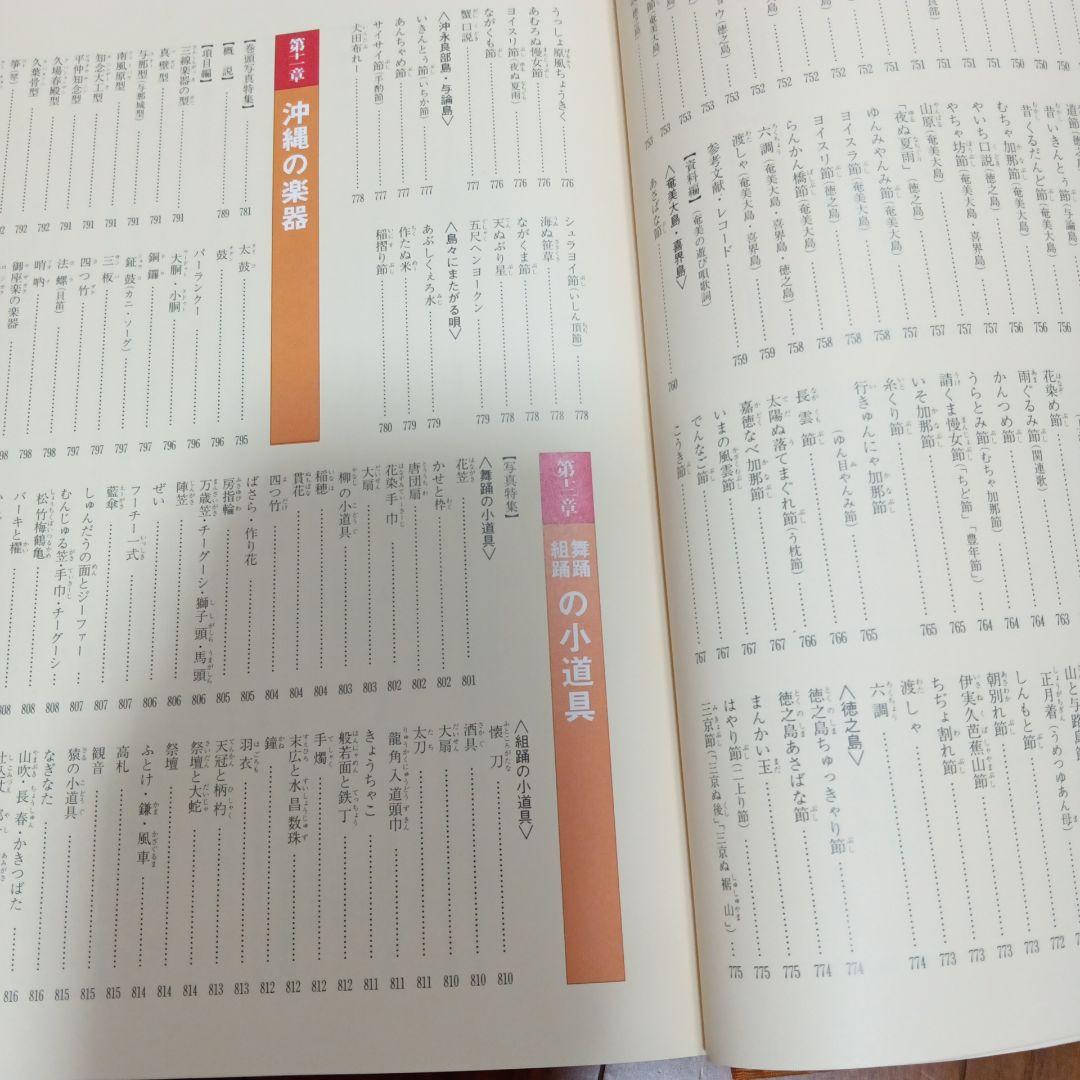 ョウ(徳之島)
752
752
753
753
753
753
750
750
751
751
751
道節(徳之島)
昔いきんとぅ節(与論島)
昔くるだんど節(奄美大島)
むちゃ加那節(奄美大島)
やいち口説(徳之島)
やちゃ坊節(奄美大島・喜界島)
山原(奄美大島)
「夜ぬ夏雨」(奄美大島)
ゆんみやんみ節(奄美大島)
ヨイスラ節(奄美大島)
ヨイスリ節(徳之島)
らんかん橋節(奄美大島)
六調(奄美大島・喜界島・徳之島)
渡しゃ(奄美大島・喜界島)
参考文献・レコード
【資料編】(奄美の遊び唄歌詞)
〈奄美大島・喜界島〉
あさばな節
756
756
756
757
757
757
757
758
758
758
758
759
759
760
花染め節
雨ぐるみ節(関連歌)
かんつめ節
うらとみ節(むちゃ加那節)
請くま慢女節(「ちど節」「豊年節」)
いそ加那節
糸くり節
行きゅんにゃ加那節
(ゆん目やんみ節)
長雲節
太陽ぬ落てまぐれ節(う枕節)
嘉徳なべ加那節
いまの風雲節
でんなご節
こうき節
763
764
764
764
765
765
765
766
766
767
767
767
767
山と与路島節
正月着(うめつゆあん母)
しんもと節
朝別れ節
伊実久芭蕉山節
ちぢょ割れ節
渡しゃ
六調
〈徳之島〉
徳之島ちゅっきゃり節
徳之島あさばな節
まんかい玉
はやり節(二上り節)
三京節(「三京ぬ後」「三京ぬ裾山」)
772
772
773
773
773
774
774
774
774
775
775
775
うっしょ原風ちょうきく
あむろぬ慢女節
ヨイスリ節(夜ぬ夏雨)
ながくも節
蟹口説
〈沖永良部島・与論島〉
いきんとぅ節(いちか節)
あんちゃめ節
サイサイ節(手酌節)
犬田布れー
776
776
776
776
777
777
777
777
778
シュラヨイ節(いしん頂節)
海ぬ笹草
ながくま節
天ぬぶり星
五尺ヘンヨークン
〈島々にまたがる唄〉
あぶしくぇろ水
作たぬ米
稲摺り節
778
778
778
779
779
779
779
780
第十一章
沖縄の楽器
【巻頭写真特集】
【概説】
【項目編】
三線楽器の型
真壁型
与那型(与那城型)
南風原型
知念大工型
平仲知念型
久場春殿型
久葉骨型
箏(琴)
781
789
791
791
791
791
791
791
792
792
太鼓
パーランクー
大胴・小胴
銅鑼
鉦鼓(カニ・ソーグ)
三板
四つ竹
法螺(貝笛)
哨吶
御座楽の楽器
795
796
796
796
797
797
797
797
798
798
第十二章
舞踊
組踊
の小道具
【写真特集】
〈舞踊の小道具〉
花笠
かせと枠
唐団扇
花染手巾
大扇
柳の小道具
稲穂
貫花
四つ竹
ばさら・作り花
房指輪
万歳笠・チーグーシ・獅子頭・馬頭
陣笠
ぜい
フーチー一式
藍傘
しゅんだうの面とジーファー
むんじゅる笠・手巾・チーグーシ
松竹梅鶴亀
バーキと櫂
801
802
802
802
803
803
803
804
804
804
805
805
806
806
806
807
807
808
808
808
〈組踊の小道具〉
懐刀
酒具
大扇
太刀
龍角・入道頭巾
きょうちゃこ
般若面と鉄丁
手燭
末広と水晶数珠
鐘
羽衣
天冠と柄杓
祭壇と大蛇
祭壇
ふとけ・鎌・風車
高札
観音
猿の小道具
なぎなた
山吹・長春・かきつばた
810
810
810
811
811
811
812
812
812
812
813
813
813
814
814
814
815
815
816
816